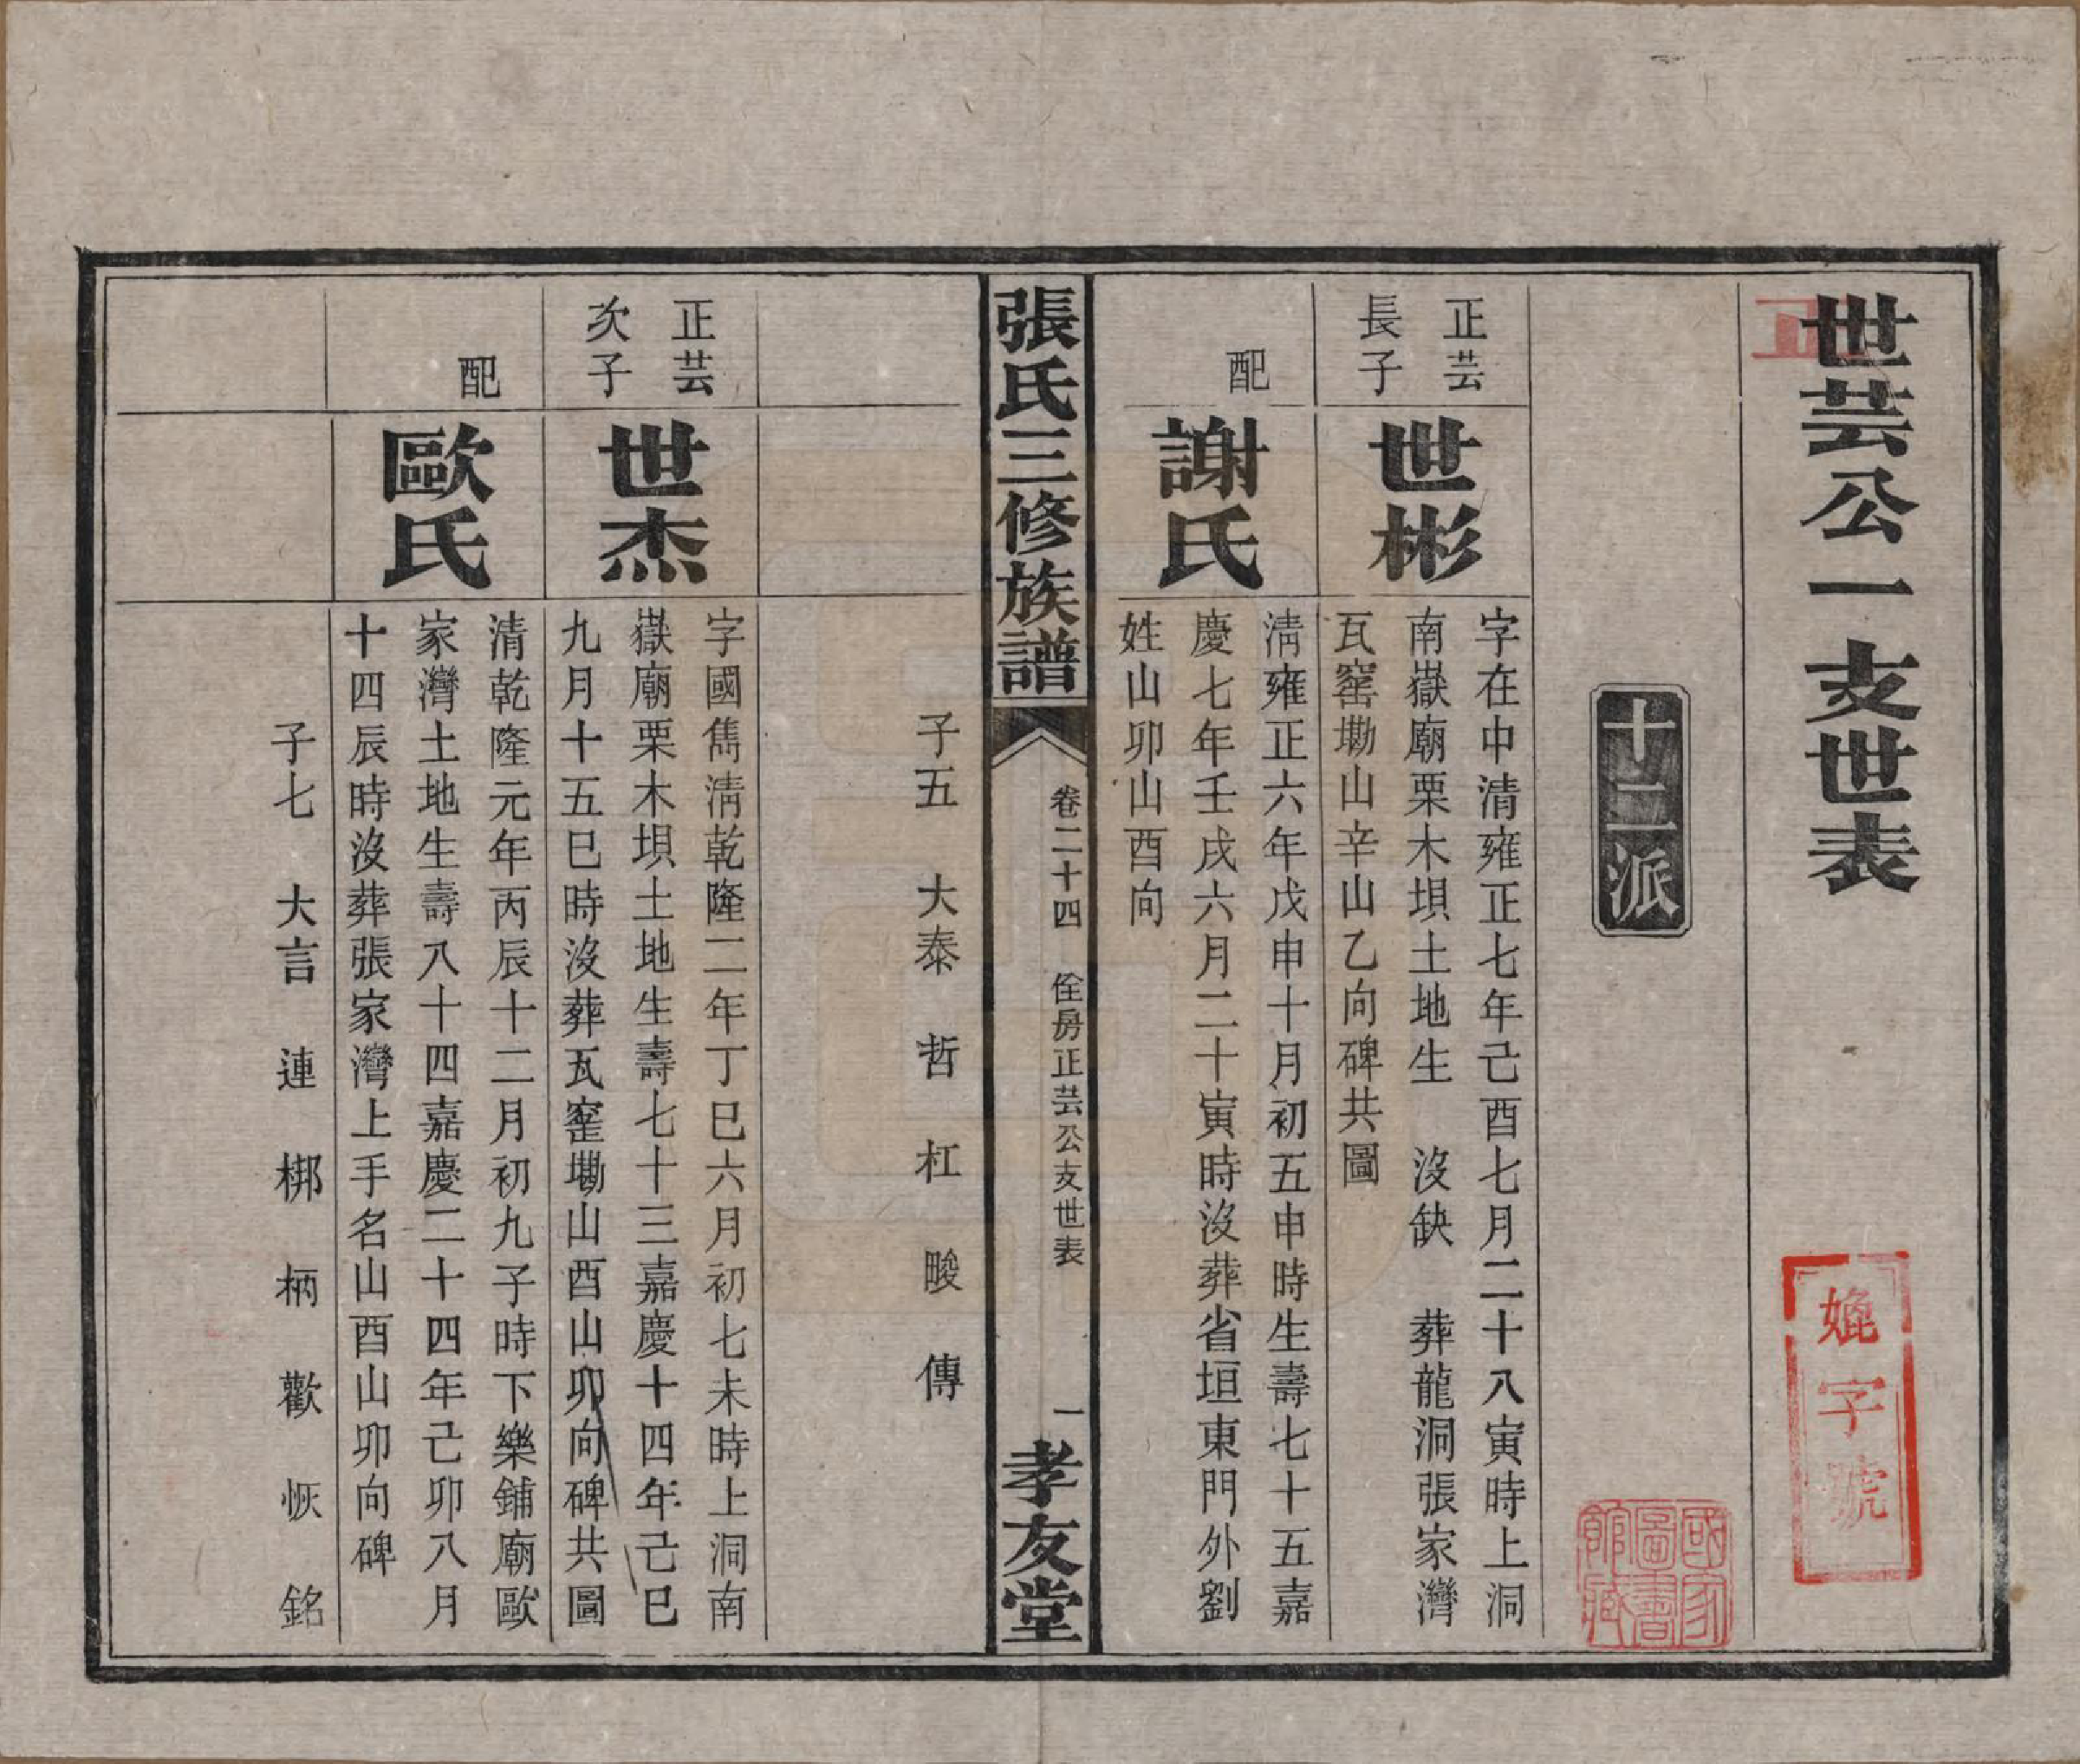 世芸公一支世表
正
媲字號
國家圖書館藏
十二派
正芸
長子
世彬
字在中清雍正七年己酉七月二十八寅時上洞
南嶽廟栗木垻土地生 沒缺 葬龍洞張家灣
瓦窰墈山辛山乙向碑共圖
配
謝氏
淸雍正六年戊申十月初五申時生壽七十五嘉
慶七年壬戌六月二十寅時沒葬省垣東門外劉
姓山卯山酉向
張氏三修族譜
卷二十四 佺房正芸公支世表
一
孝友堂
子五 大泰 哲 杠 畯 傳
正芸
次子
世杰
字國雋淸乾隆二年丁巳六月初七未時上洞南
嶽廟栗木垻土地生壽七十三嘉慶十四年己巳
九月十五巳時沒葬瓦窰墈山酉山卯向碑共圖
配
歐氏
清乾隆元年丙辰十二月初九子時下樂鋪廟歐
家灣土地生壽八十四嘉慶二十四年己卯八月
十四辰時沒葬張家灣上手名山酉山卯向碑
子七 大言 連 梆 柄 歡 恢 銘